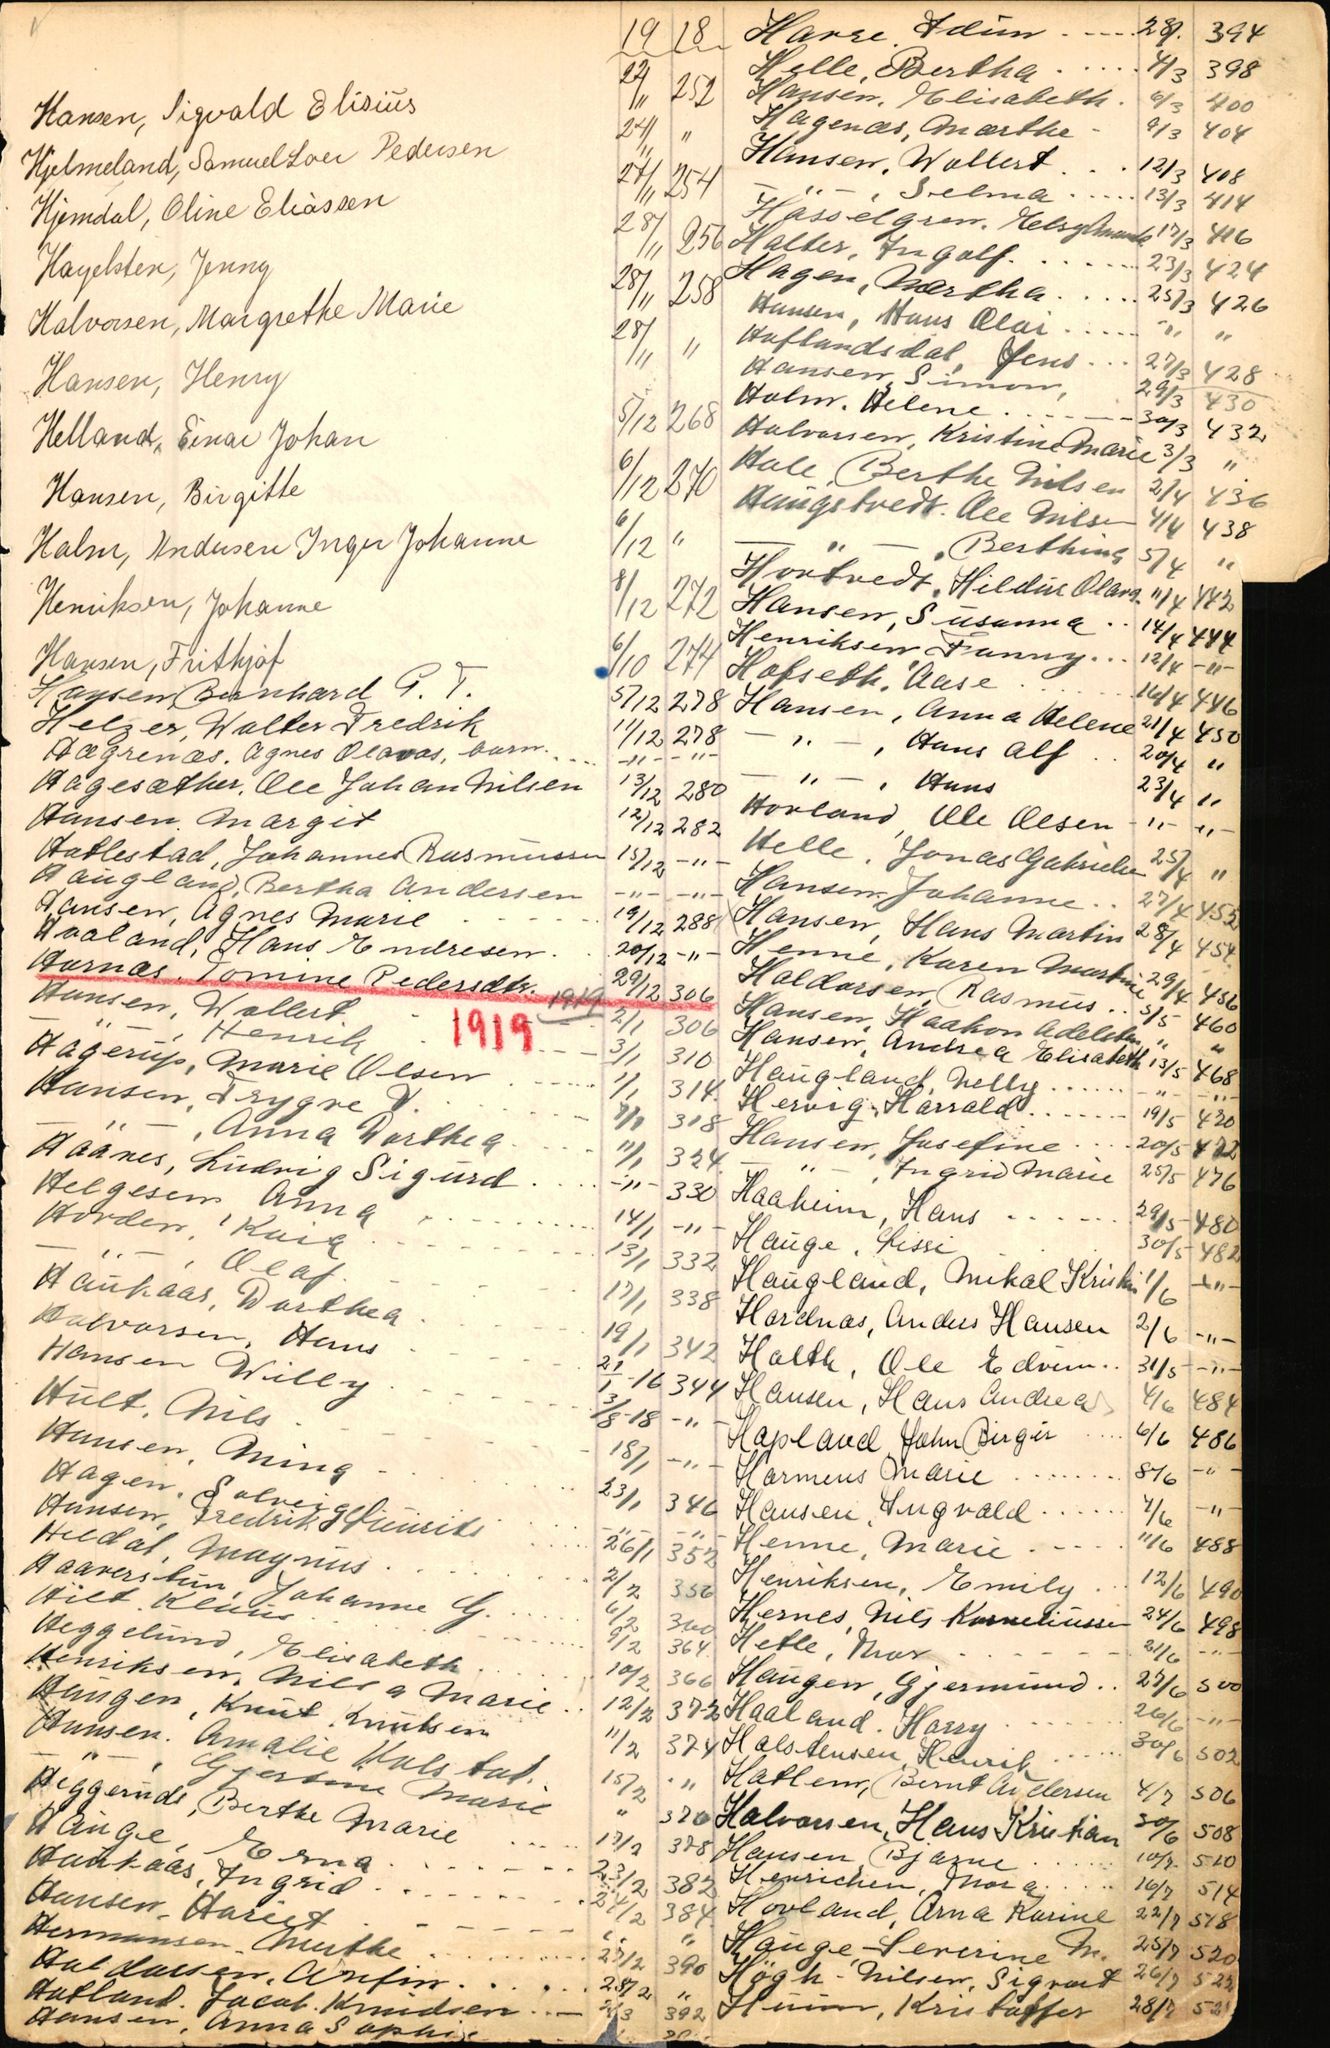 19 18
Hansen, Sigvald Elisius 22/11 252
Hjelmeland, Samuel Loer Pedersen 24/11 "
Hjemdal, Oline Eliassen 27/11 254
Hagelsten, Jenny 28/11 256
Halvorsen, Margrethe Marie 28/11 258
Hansen, Henry 28/11 "
Helland, Einar Johan 5/12 268
Hansen, Birgitte 6/12 270
Halm, Andersen Inger Johanne 6/12 "
Henriksen, Johanne 8/12 272
Hansen, Frithjof 6/10 274
Hansen, Bernhard G. T. 5/12 278
Helzer, Walter Fredrik 11/12 278
Hægrenæs, Agnes Olavas, barn. -"- -"-
Hagesæther, Ole Johan Nilsen 13/12 280
Hansen, Margit 12/12 282
Hatlestad, Johannes Rasmussen 15/12 -"-
Haugland, Bertha Andersen -"- -"-
Hansen, Agnes Marie 19/12 288
Haaland, Hans Endresen 20/12 -"-
Hornæs, Tomine Pedersdtr. 29/12 306
1919
1919
Hansen, Wollert 2/1 306
-"-, Henrik 3/1 310
Hagerup, Marie Olsen 1/1 314
Hansen, Trygve V. 318
-"-, Anna Dorthea 11/1 324
Haanes, Ludvig Sigurd -"- 330
Helgesen, Anna 14/1 -"-
Horden, Kaia 13/1 332
-"-, Olaf 17/1 338
Haukaas, Dorthea 19/1 342
Halvorsen, Hans 344
Hansen Willy 3/8-18 -"-
Hult, Nils 18/1 -"-
Hansen, Minna 23/1 346
Hagen, Solveig -"- -"-
Hansen, Fredrik 26/1 352
Hildal, Magnus 2/2
Haaverstun, Johanne G. 6/2
Hilt 9/2 364
Heggelund, Elisabeth 10/2 366
Henriksen, Nilsa Marie 12/2 372
Haugen, Knut Knutsen 11/2 374
Hansen, Amalie 15/2 "
-"-, Gjertine Marie "
Heggernds, Berthe Marie 17/2 378
Hauge, Erna 23/2 382
Haukaas, Ingrid 24/2 384
Hansen, Hariet " "
Hermansen, Merthe 27/2 390
Haldorsen, Arnfin 28/2 "
Hatland, Jacob Knudsen 2/3 392
Hansen, Anna Sophie
Havre, Idun 28/ 394
Helle, Bertha 4/3 398
Hansen, Elisabeth 6/3 400
Hagenæs, Marthe 9/3 404
Hansen, Wollert 12/3 408
-"-, Selma 13/3 414
Hasselgren, 17/3 416
Halter, Ingolf 23/3 424
Hagen, Martha 25/3 426
Hansen, Hans Olai " "
Haflandsdal, Jens 27/3 428
Hansen, Simon, 29/3 430
Holm, Helene 30/3 432
Halvorsen, Kristine Marie 3/3 "
Hole, Berthe Nilsen 2/4 436
Haugstvedt, Ole Nilsen 4/4 438
-"-, Berthina 5/4 "
Hortvedt, Hildur Olava 11/4 442
Hansen, Susanna 14/4 444
Henriksen Fanny 12/4 -"-
Hofseth, Aase 16/4 446
Hansen, Anna Helene 21/4 450
-"-, Hans Alf 20/4 "
-"-, Hans 23/4 "
Hovland, Ole Olsen -"- -"-
Helle, Jonas Gabrielsen 25/4 "
Hansen, Johanne 27/4 452
Hansen, Hans Martin 28/4 454
Henne, Karen Martine 29/4 456
Haldorsen, Rasmus 5/5 460
Hansen, Haakon Adelsten " "
Hansen, Andrea Elisabeth 13/5 468
Haugland, Nelly -"- -"-
Hervig, Harrald 19/5 470
Hansen, Josefine 20/5 472
-"-, Ingrid Marie 25/5 476
Haaheim, Hans 29/5 480
Hauge, Sissi 30/5 482
Haugland, Mikal Kristian 1/6 -"-
Hordnæs, Anders Hansen 2/6 -"-
Holth, Ole Edvin 31/5 -"-
Hansen, Hans Andreas 4/6 484
Hapland, John Birger 6/6 486
Harmens Marie 8/6 -"-
Hansen, Ingvald 7/6 -"-
Henne, Marie 11/6 488
Henriksen, Emily 12/6 490
Hernes, Nils Korneliussen 24/6 498
Helle, Thor 21/6 -"-
Haugen, Gjermund 27/6 500
Haaland, Harry 26/6 -"-
Halstensen, Henrik 30/6 502
Hatlem, Bernt Andersen 4/7 506
Halvorsen, Hans Kristian 30/6 508
Hansen, Bjarne 10/7 510
Henrichsen, Thora 16/7 514
Hovland, Anna Karine 22/7 518
Hauge, Severine M. 25/7 520
Högh-Nilsen, Sigvart 26/7 522
Huum, Kristoffer 28/7